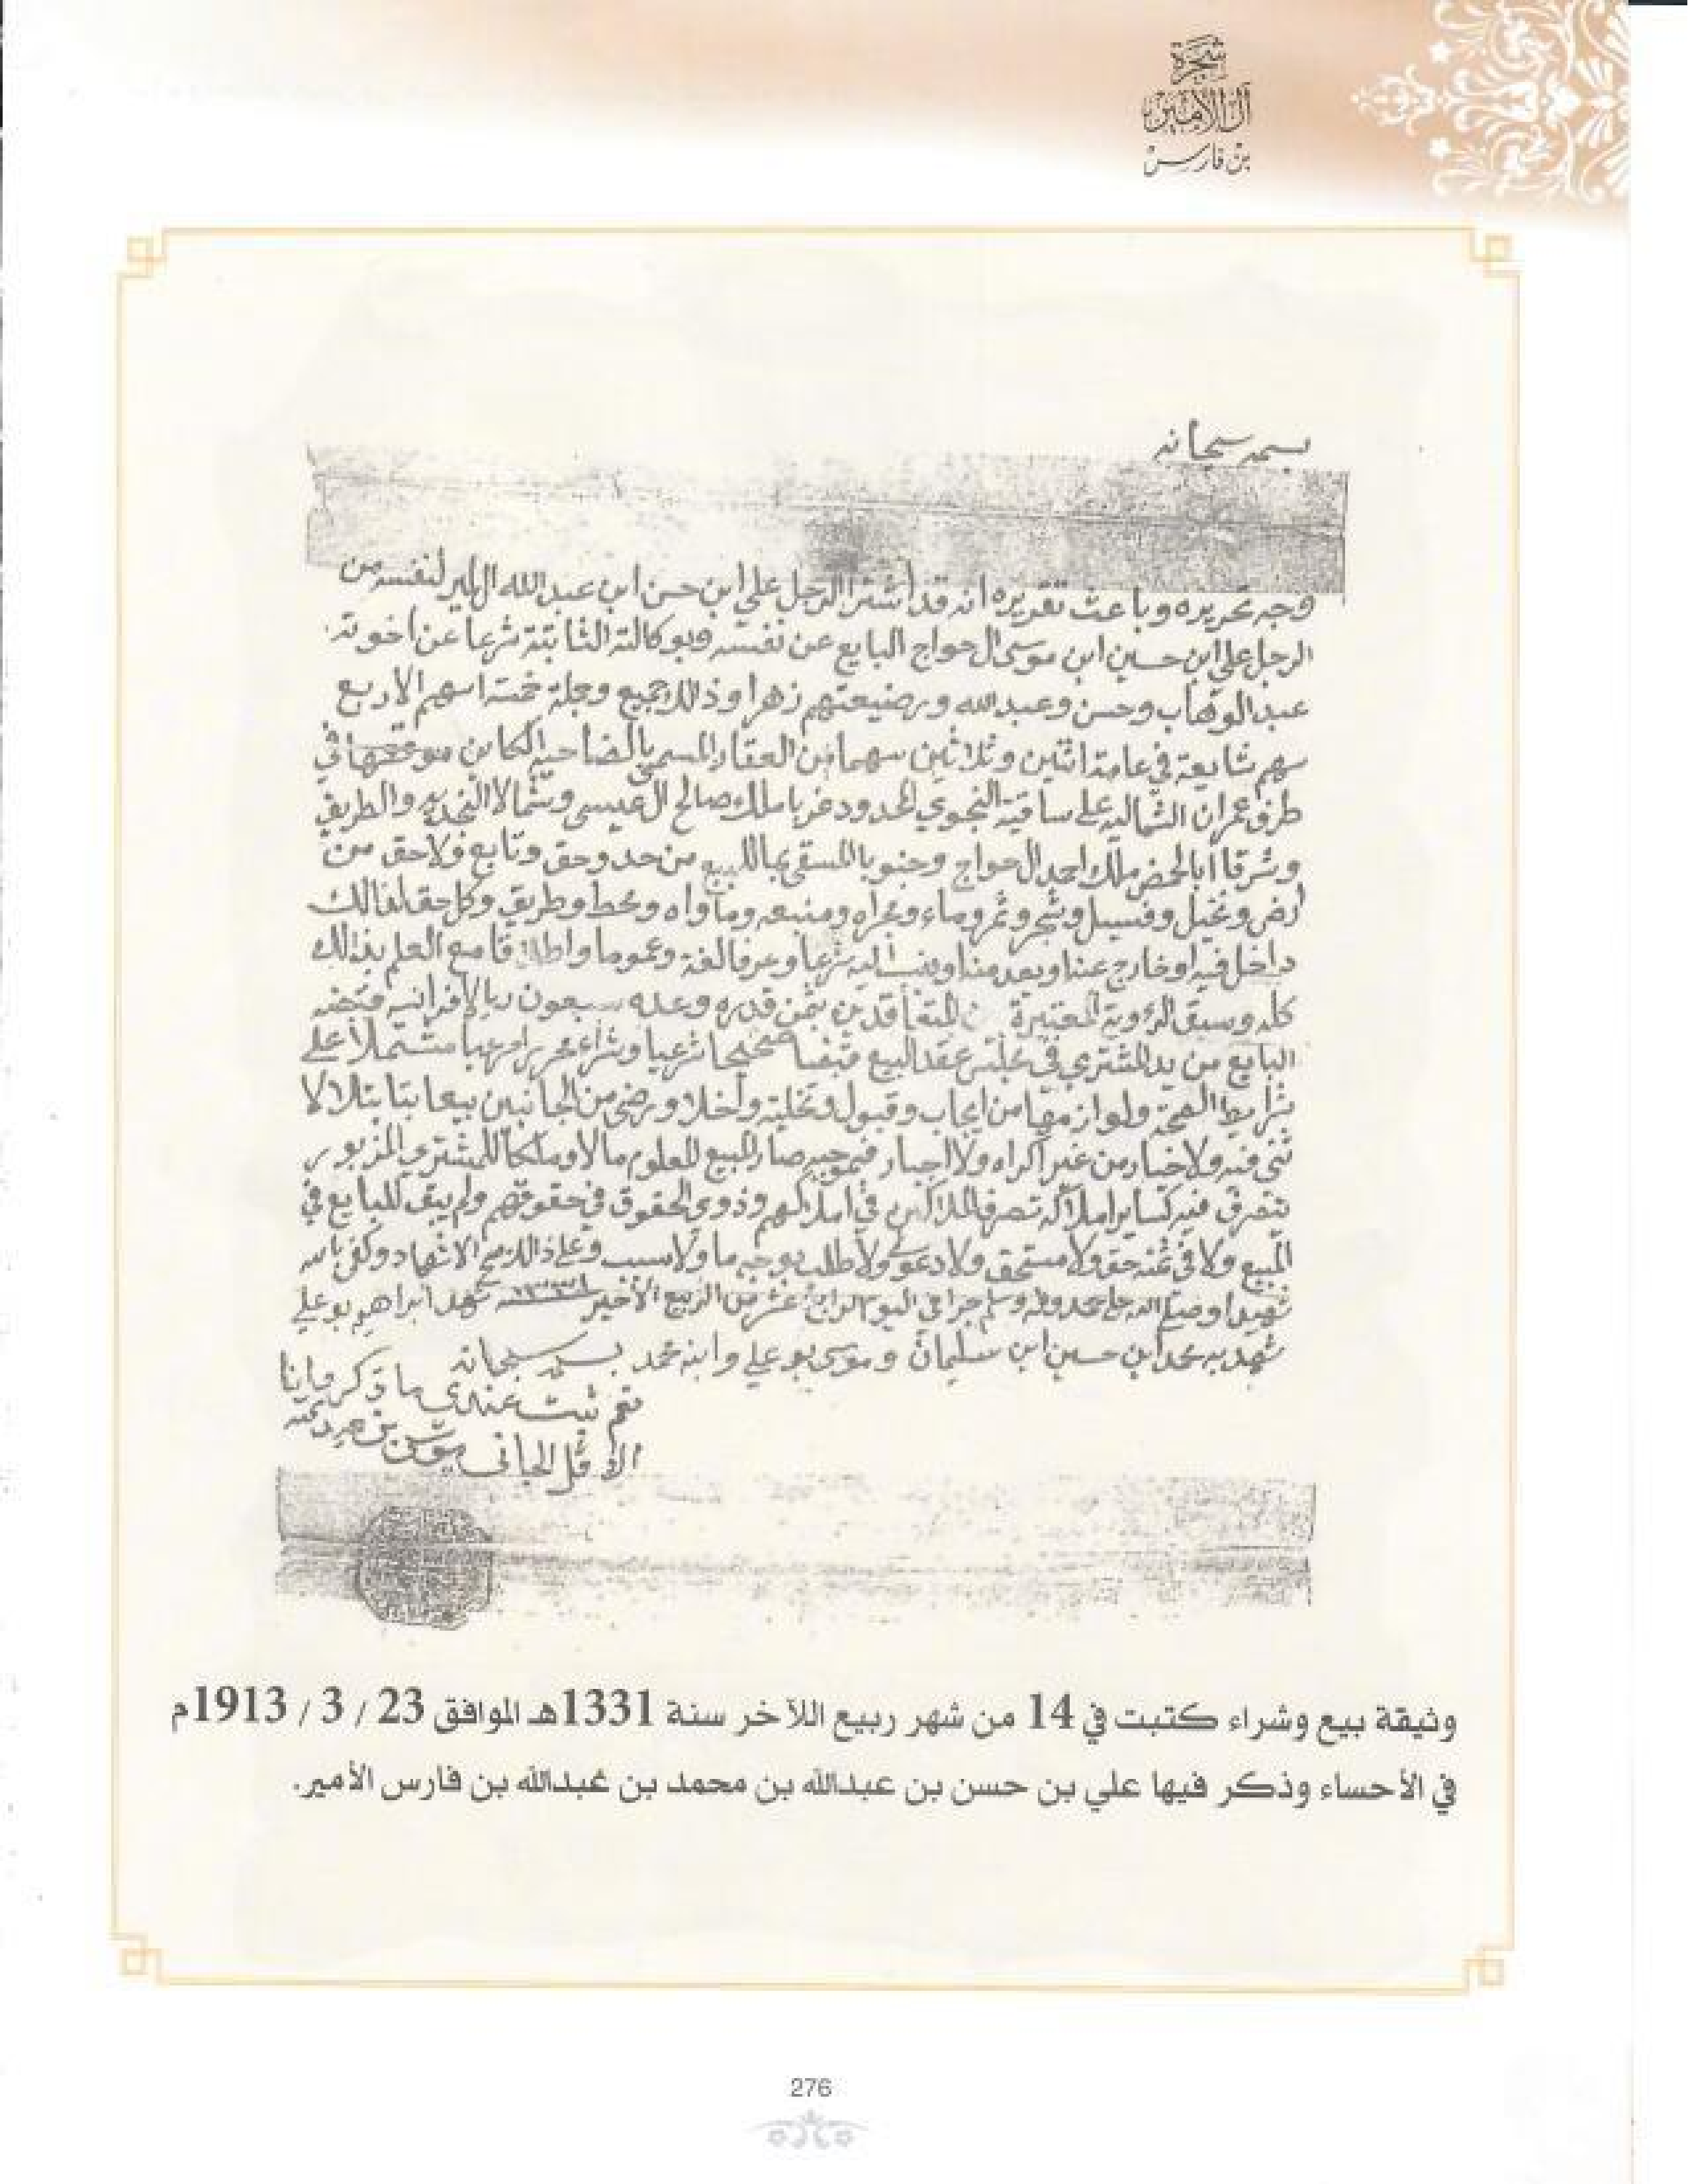 شجرة
آل الأمير
بن فارس
بسمه سبحانه
وجه تحريره وباعث تقريره انه قد اشترا الرجل علي ابن حسن ابن عبد الله الامير لنفسه من
الرجل علي ابن حسين ابن موسى ال حواج البايع عن نفسه وبوكالته الثابتة شرعا عن اخوته
عبد الوهاب وحسن وعبد الله ورضيعتهم زهرا وذالك جميع وجملة خمسة اسهم الا ربع
سهم شايعة في عامة اثنين وثلاثين سهما من العقار المسمى بالضاحيه الكاين موقعها في
طرف عمران الشماليه على ساقية النجوي المحدود غربا ملك صالح ال عيسى وشمالا والطريق
وشرقا ملك احمد ال حواج وجنوبا المسقى بما للمبيع من حد وحق وتابع ولاحق من
ارض ونخيل وفسيل وشجر وثمر وماء ومجراه ومنبعه وماواه ومحط وطريق وكل حق لذالك
داخل فيه او خارج عنه او بعد منه او ينسب اليه شرعا وعرفا لغة وعموما واطلاقا مع العلم بذالك
كله وسبق الرؤية المعتبرة من المتعاقدين بثمن قدره وعده سبعون ريالا فرانسه قبضه
البايع من يد المشتري في مجلس عقد البيع قبضا صحيحا شرعيا وشراء محررا مرعيا مشتملا على
شرايط الصحة ولوازمها من ايجاب وقبول وتخلية واخلاء ورضى من الجانبين بيعا بتا بتلا لا
ثنى فيه ولا خيار من غير اكراه ولا اجبار فبموجبه صار المبيع المعلوم مالا وملكا للمشتري المزبور
يتصرف فيه كساير املاكه تصرف الملاكين في املاكهم وذوي الحقوق في حقوقهم ولم يبق للبايع في
المبيع ولا في ثمنه حق ولا مستحق ولا دعوى ولا طلب بوجه ما ولا سبب وعلى ذالك صح الاشهاد وكفى بالله
شهيدا وصلى الله على محمد واله وسلم جرا في اليوم الرابع عشر من الربيع الاخير سنه ١٣٣١ شهد ابراهيم بو علي
شهد به محمد ابن حسين ابن سليمان و موسى بو علي وابنه محمد بسمه سبحانه
نعم ثبت عندي ما ذكر وانا
الاقل الجاني موسى بن
وثيقة بيع وشراء كتبت في 14 من شهر ربيع اللآخر سنة 1331هـ الموافق 23 / 3 / 1913م
في الأحساء وذكر فيها علي بن حسن بن عبدالله بن محمد بن عبدالله بن فارس الأمير.
276